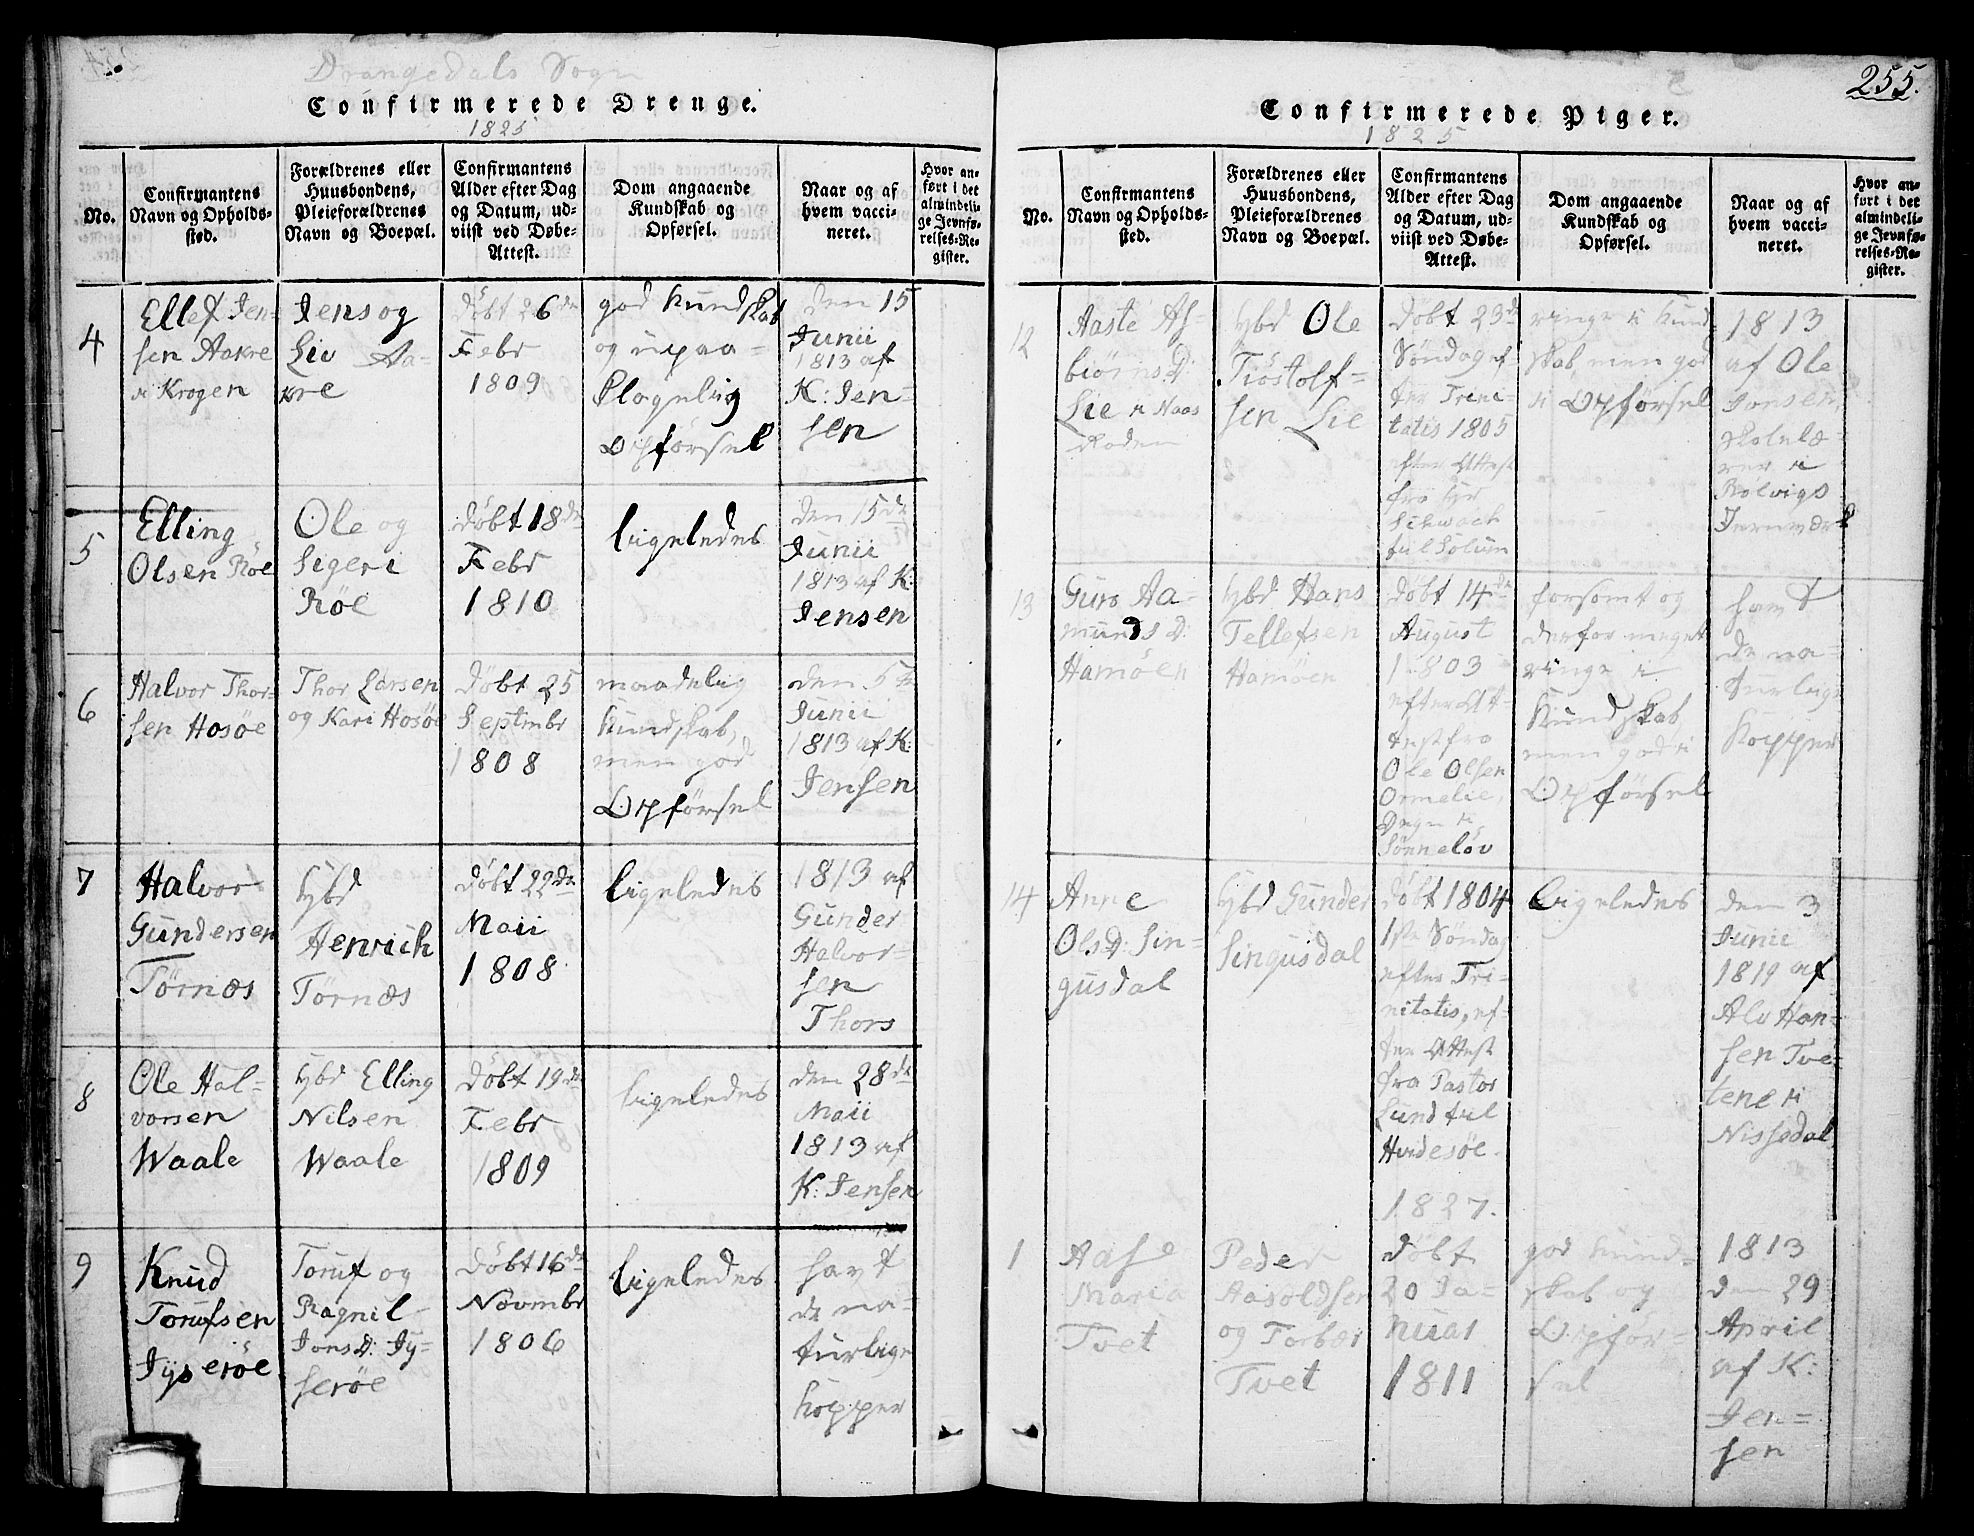 Drangedals Sogn
Confirmerede Drenge.
1825
No.
Confirmantens
Navn og Opholds-
sted.
Forældrenes eller
Huusbondens,
Pleieforældrenes
Navn og Boepæl.
Confirmantens
Alder efter Dag
og Datum, ud-
viist ved Døbe-
Attest.
Dom angaaende
Kundskab og
Opførsel.
Naar og af
hvem vacci-
neret.
Hvor an-
ført i det
almindeli-
ge Jevnfø-
relses-Re-
gister.
4
Ellef Jen-
sen Aakre
i Krogen
Jens og
Liv Aa-
kre
Døbt 26de
Febr
1809
god Kundskab
og upaa-
klagelig
Opførsel
den 15
Junii
1813 af
K: Jen-
sen
5
Elling
Olsen Röe
Ole og
Sigeri
Röe
Døbt 18de
Febr
1810
ligeledes
den 15de
Junii
1813 af K:
Jensen
6
Halvor Thor-
sen Hosøe
Thor Larsen
og Kari Hosøe
Døbt 25
Septmbr
1808
maadelig
Kundskab,
men god
Opførsel
den 5te
Junii
1813 af K:
Jensen
7
Halvor
Gundersen
Törnæs
Hbd
Henrich
Törnæs
Døbt 22de
Maii
1808
ligeledes
1813 af
Gunder
Halvor-
sen
Thors
8
Ole Hal-
vorsen
Waale
Hbd Elling
Nilsen
Waale
Døbt 19de
Febr
1809
ligeledes
den 28de
Maii
1813 af
K: Jensen
9
Knud
Torufsen
Jyserøe
Toruf og
Ragnil
Jonsd: Jy-
serøe
Døbt 16de
Novmbr
1806
ligeledes
havt
de na-
turlige
Kopper
255.
Confirmerede Piger.
1825
No.
Confirmantens
Navn og Opholds-
sted.
Forældrenes eller
Huusbondens,
Pleieforældrenes
Navn og Boepæl.
Confirmantens
Alder efter Dag
og Datum, ud-
viist ved Døbe-
Attest.
Dom angaaende
Kundskab og
Opførsel.
Naar og af
hvem vacci-
neret.
Hvor an-
ført i det
almindeli-
ge Jevnfø-
relses-Re-
gister.
12
Aaste As-
biörnsD:
Lie i Naas
Roden
Hbd Ole
Tiöstolf-
sen Lie
Døbt 23de
Søndag ef-
ter Trini-
tatis 1805
efter Attest
fra Hr
Schwach
til Solum
ringe i Kund-
skab, men god
i Opførsel
1813
af Ole
Jonsen,
skolelæ-
rer i
Bolvigs
Jernværk
13
Guro Aa-
mundsD:
Hamöen
Hbd Hans
Tellefsen
Hamöen
Døbt 14de
August
1803
efter At-
test fra
Ole Olsen
Ormelie,
Degn i
Sönneløv
forsømt og
derfor meget
ringe i
Kundskab
men god i
Opførsel
havt
de na-
turlige
Kopper
14
Anne
OlsD: Sin-
gusdal
Hbd Gunder
Singusdal
Døbt 1804
1ste Søndag
efter Tri-
nitatis, ef-
ter Attest
fra Pastor
Lund til
Hvidesøe.
ligeledes
den 3
Junii
1819 af
Alv Han-
sen Tve-
tene i
Nissedal
1827.
1
Aase
Maria
Tvet
Peder
Aasoldsen
og Torbær
Tvet
Døbt
20 Ja-
nuar
1811
god Kund-
skab og
Opfør-
sel
1813
den 29
April
af K:
Jen-
sen